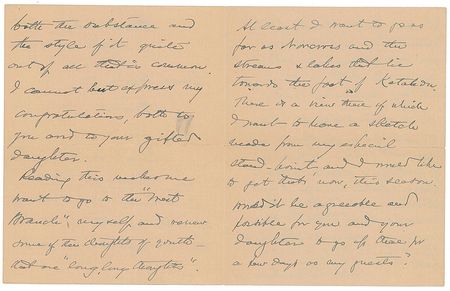 both the substance and
the style of it quite
out of all that is common.
I cannot but express my
congratulations, both to
you and to your gifted
daughter.
Reading this makes me
want to go to the "West
Branch", myself, and renew
some of the thoughts of youth—
that are "long, long thoughts".
At least I want to go as
far as Norcross and the
streams & lakes that lie
towards the foot of Katahdin.
There is a view there of which
I want to have a sketch
made from my especial
stand-point and I would like
to get that now, this season.
Would it be agreeable and
possible for you and your
daughter to go up there for
a few days as my guests?